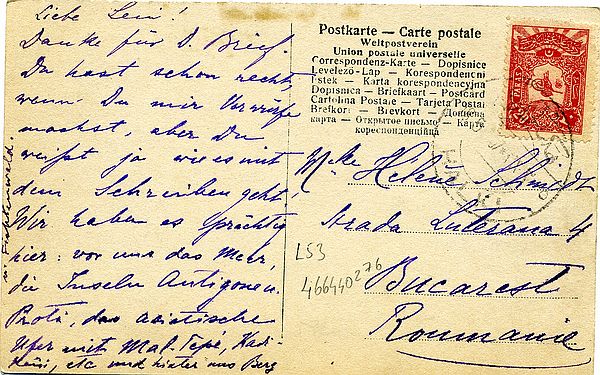 Liebe Leni!
Danke für D. Brief.
Du hast schon recht,
wenn Du mir Vorwürfe
machst, aber Du
weißt ja wie es mit
dem Schreiben geht!
Wir haben es prächtig
hier: vor uns das Meer,
die Inseln Antigoneu.
Proti, das asiatische
Ufer mit Mal-Tepé, Kadi-
Keui, etc und hinter uns Berg
u. Fichtenwald.
Postkarte — Carte postale
Weltpostverein
Union postale universelle
Correspondenz-Karte — Dopisnice
Levelező-Lap — Korespondencni
listek — Karta korespondencyjna
Dopisnica — Briefkaart — Postcard
Cartolina Postale — Tarjeta Postal
Brefkort — Brevkort — Дописна
карта — Открытое письмо — Карта
кореспонденційна
20
Mlle Hélène Schmidt
Strada Luterana 4
Bucarest
Roumanie
LS3
466440276